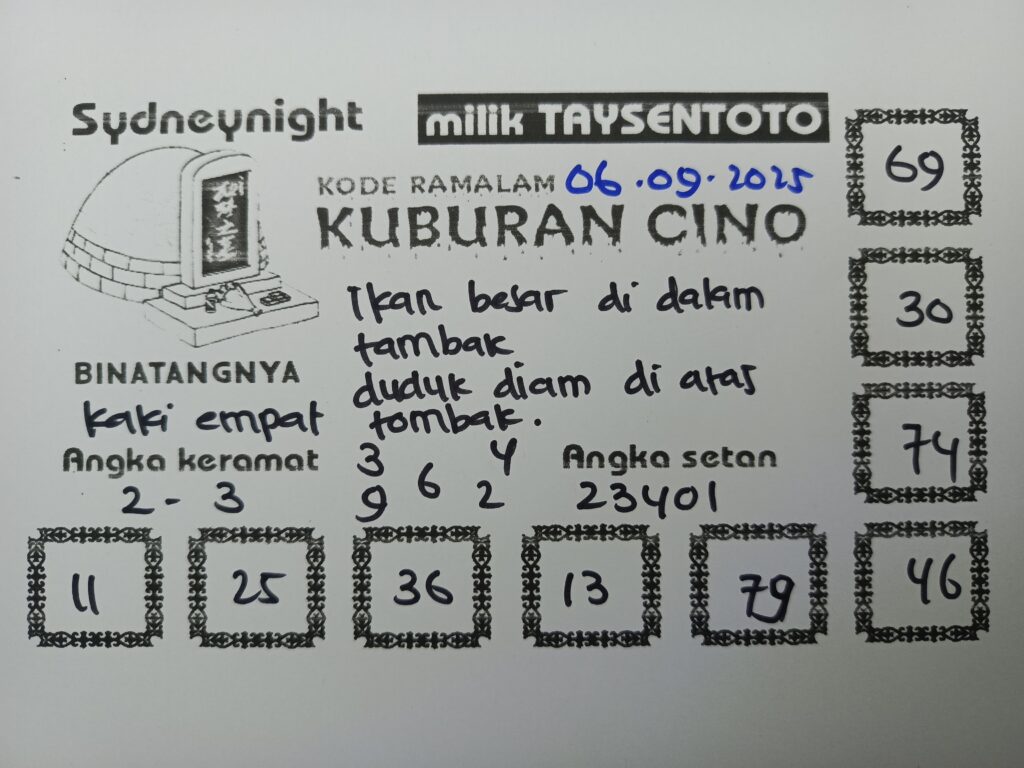 Sydneynight
milik TAYSENTOTO
KODE RAMALAM 06.09.2025
KUBURAN CINO
Ikan besar di dalam
tambak
duduk diam di atas
tombak.
BINATANGNYA
kaki empat
Angka keramat
2 - 3
3 4
6
9 2
Angka setan
23401
69
30
74
46
11 25 36 13 79